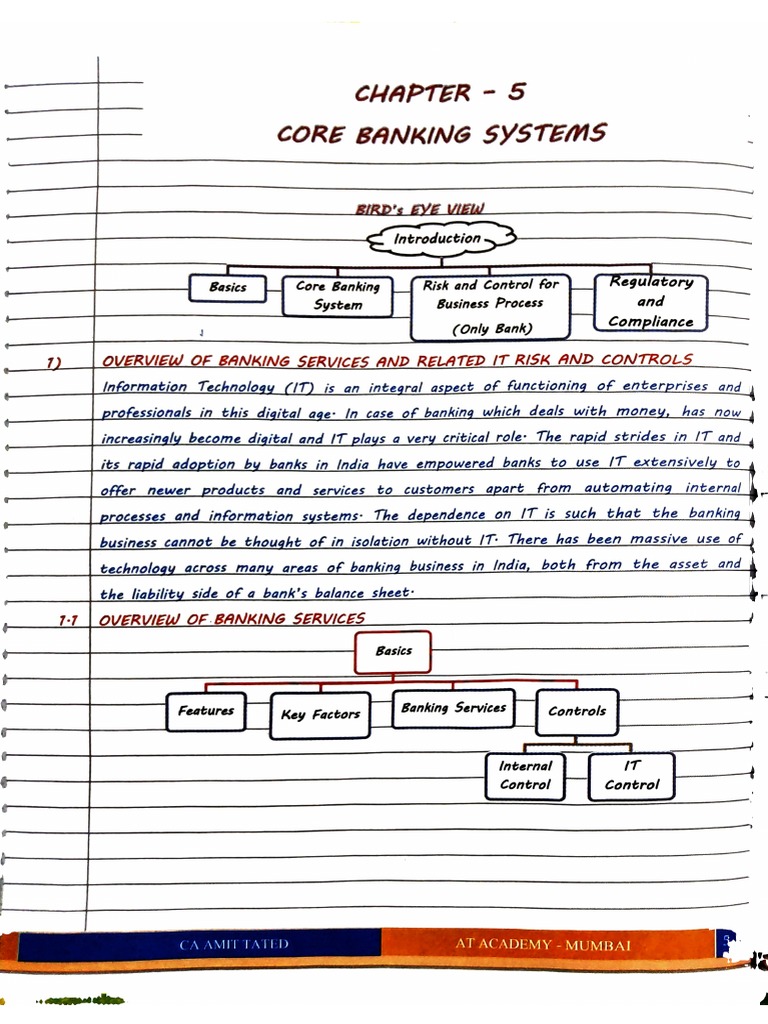 CHAPTER - 5
CORE BANKING SYSTEMS
BIRD's EYE VIEW
Introduction
Basics
Core Banking
System
Risk and Control for
Business Process
(Only Bank)
Regulatory
and
Compliance
1) OVERVIEW OF BANKING SERVICES AND RELATED IT RISK AND CONTROLS
Information Technology (IT) is an integral aspect of functioning of enterprises and
professionals in this digital age. In case of banking which deals with money, has now
increasingly become digital and IT plays a very critical role. The rapid strides in IT and
its rapid adoption by banks in India have empowered banks to use IT extensively to
offer newer products and services to customers apart from automating internal
processes and information systems. The dependence on IT is such that the banking
business cannot be thought of in isolation without IT. There has been massive use of
technology across many areas of banking business in India, both from the asset and
the liability side of a bank's balance sheet.
1.1 OVERVIEW OF BANKING SERVICES
Basics
Features
Key Factors
Banking Services
Controls
Internal
Control
IT
Control
CA AMIT TATED
AT ACADEMY - MUMBAI